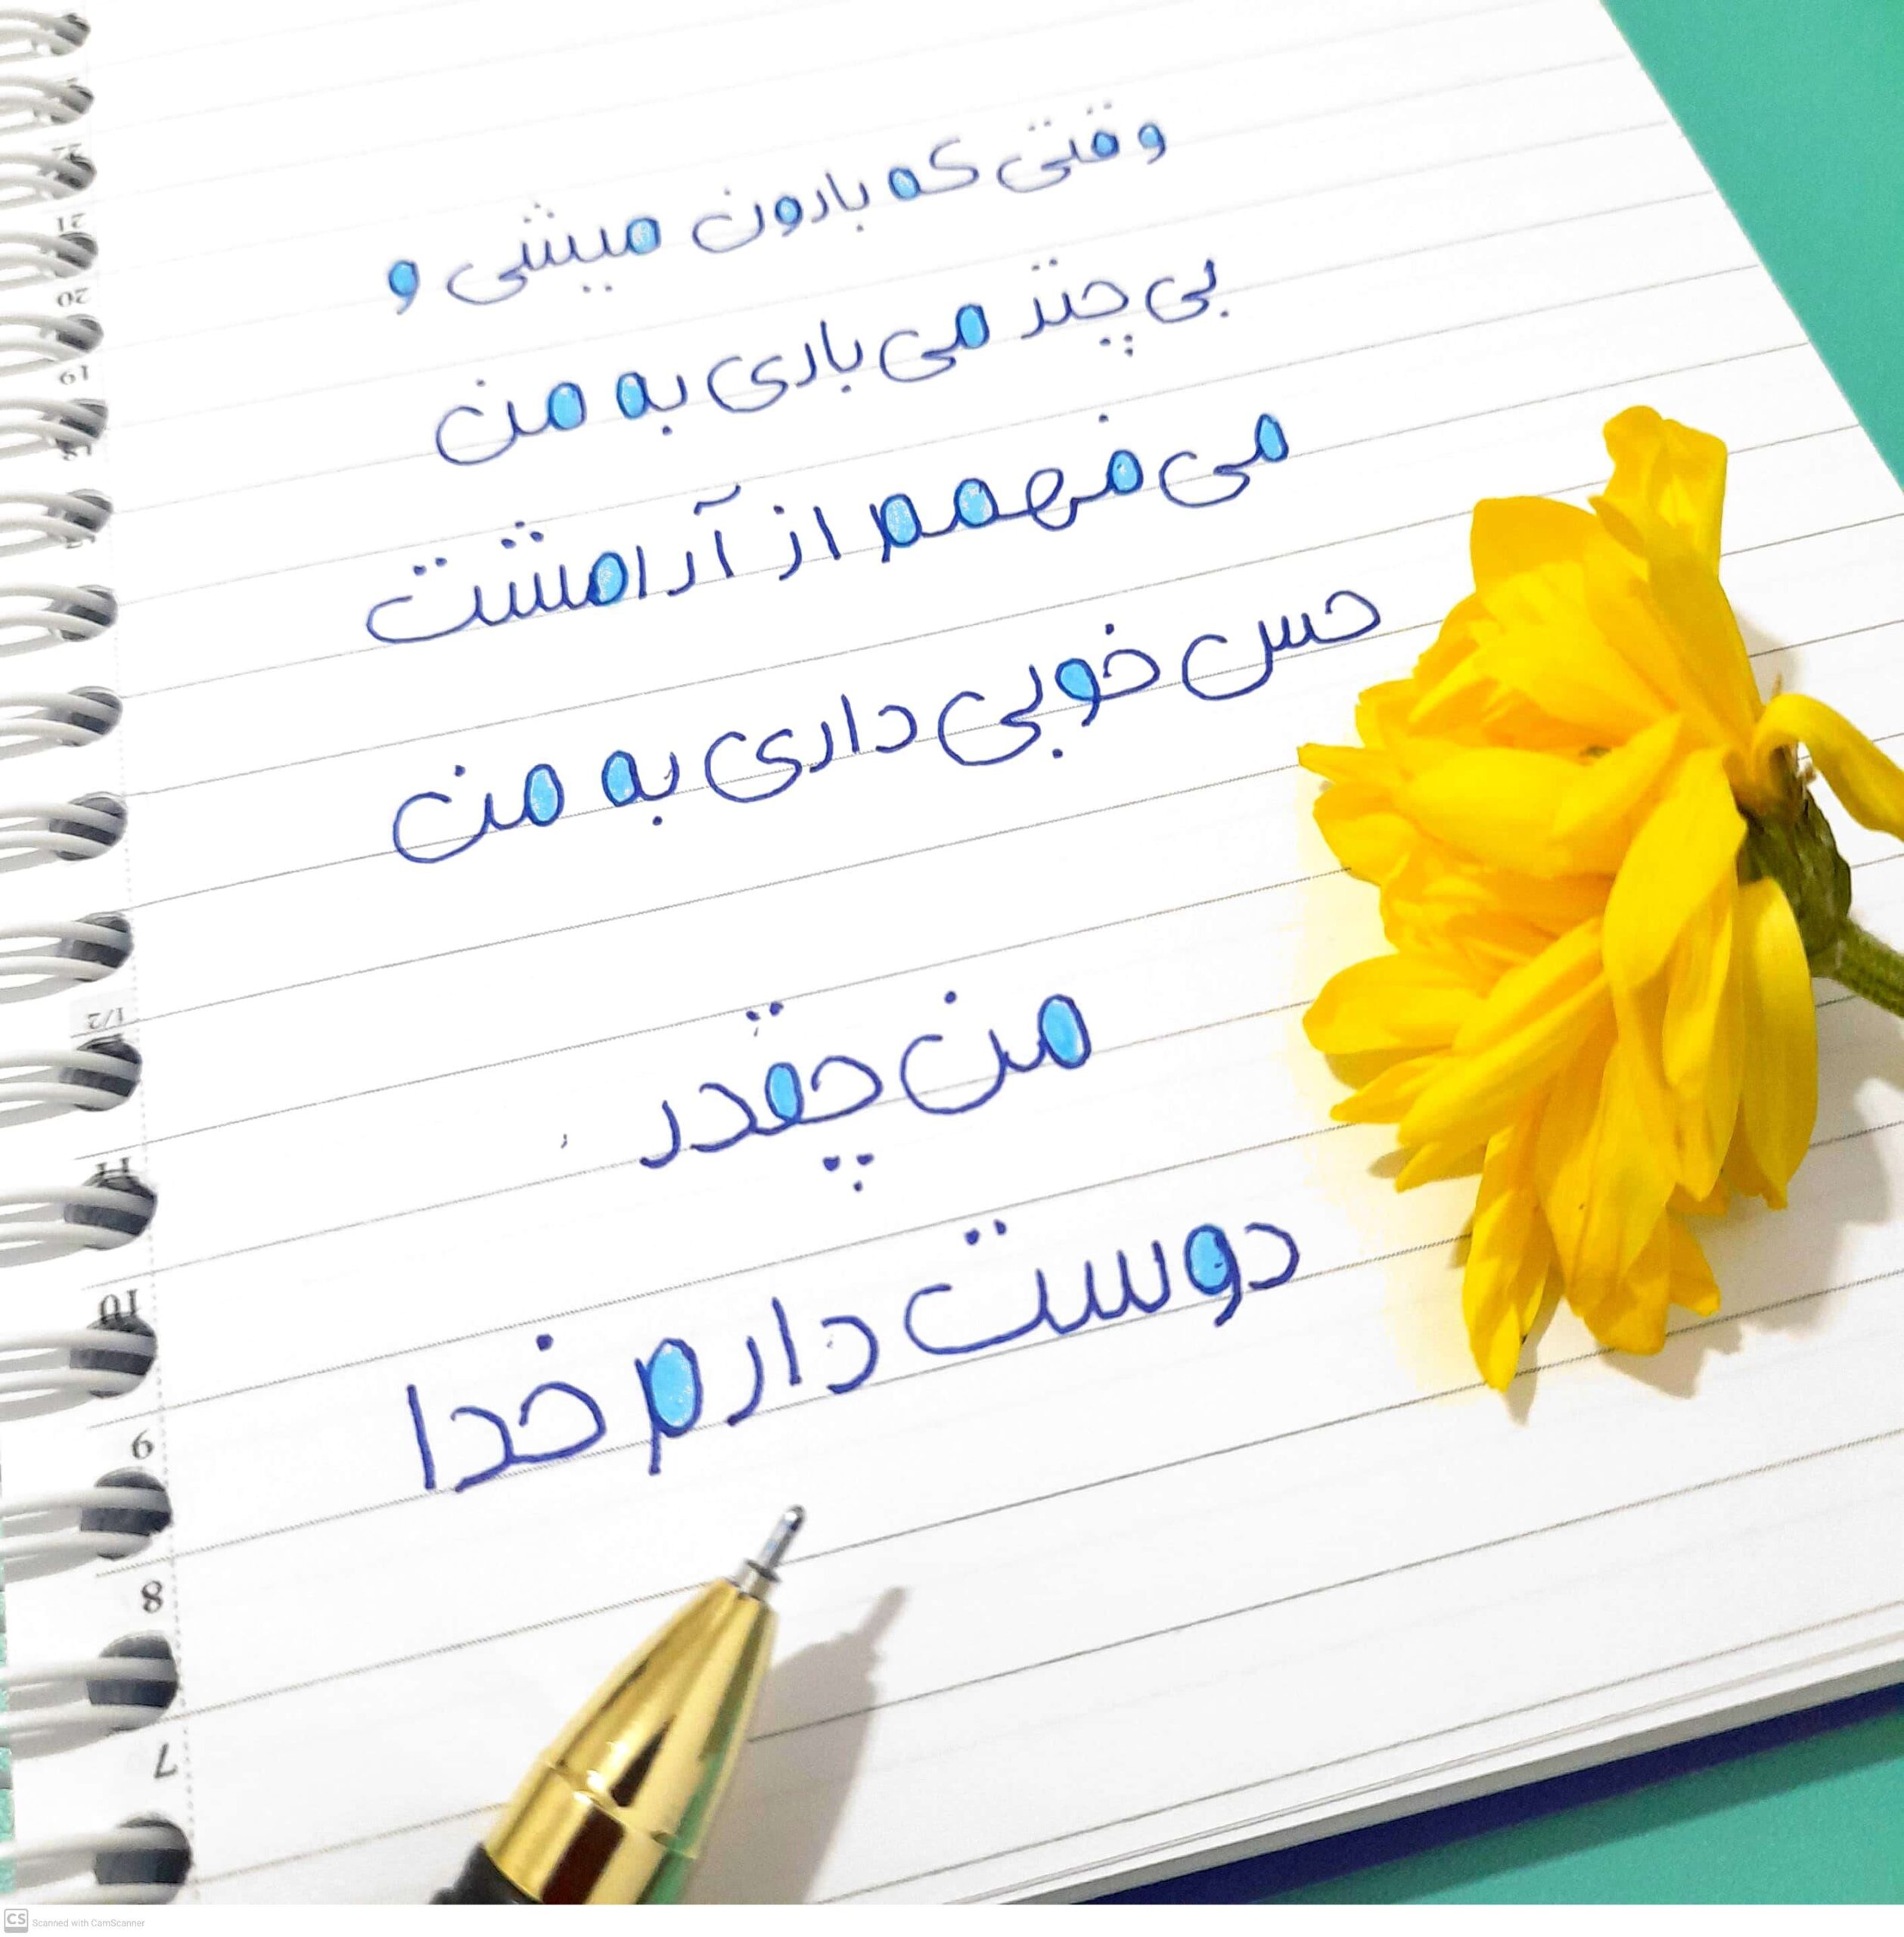 وقتی که بارون میشی و
بی چتر می باری به من
می فهمم از آرامشت
حس خوبی داری به من
من چقدر
دوست دارم خدا
21
20
19
18
1/2
11
10
9
8
7
CS Scanned with CamScanner